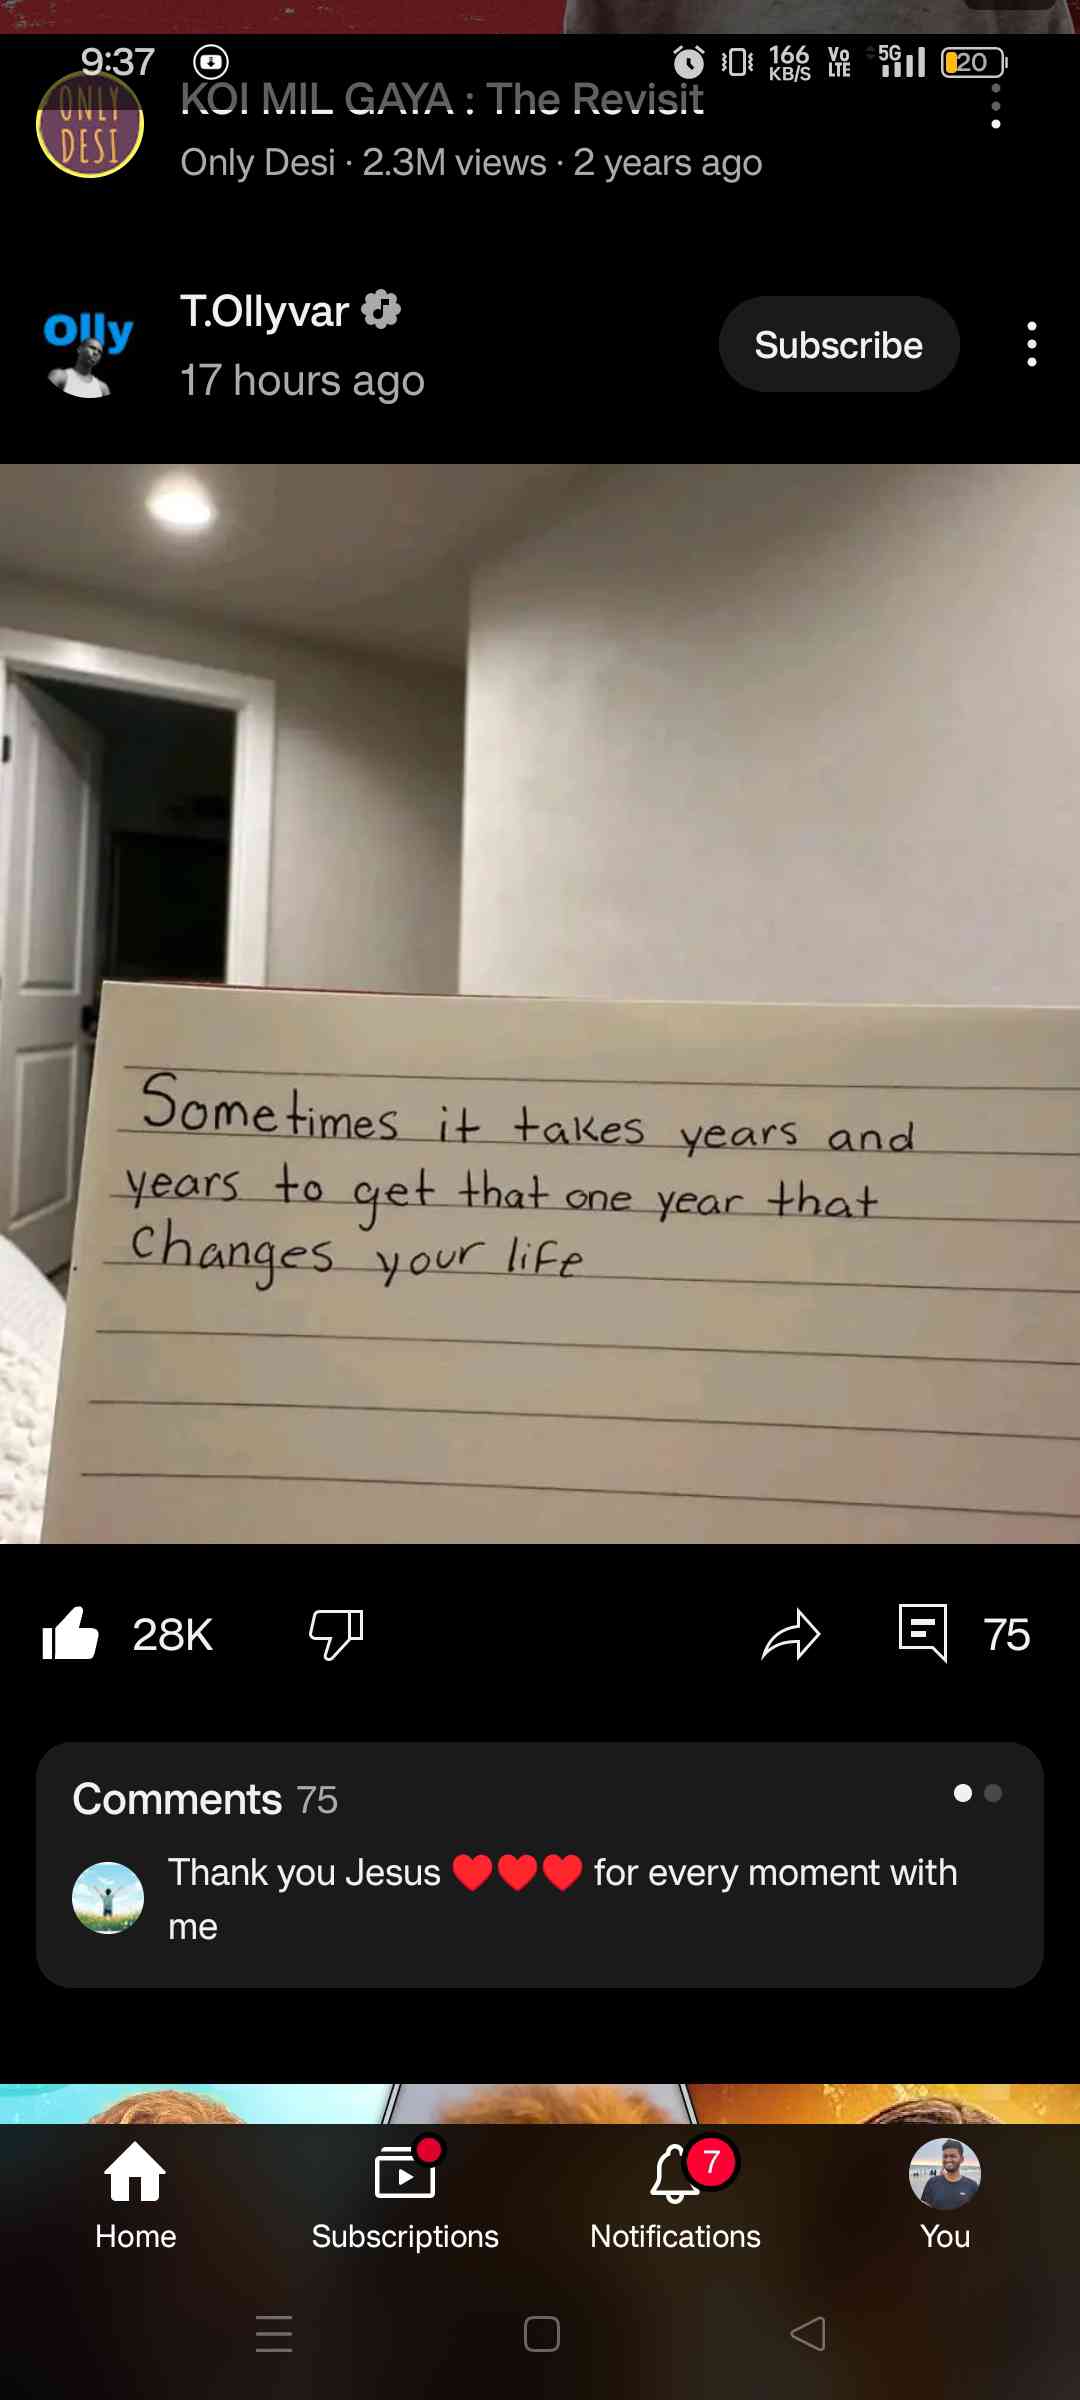 9:37
166
KB/S
Vo
LTE
5G
20
ONLY
DESI
KOI MIL GAYA : The Revisit
Only Desi · 2.3M views · 2 years ago
Olly
T.Ollyvar
17 hours ago
Subscribe
Sometimes it takes years and
years to get that one year that
changes your life
28K
75
Comments 75
Thank you Jesus ♥️♥️♥️ for every moment with
me
7
Home
Subscriptions
Notifications
You